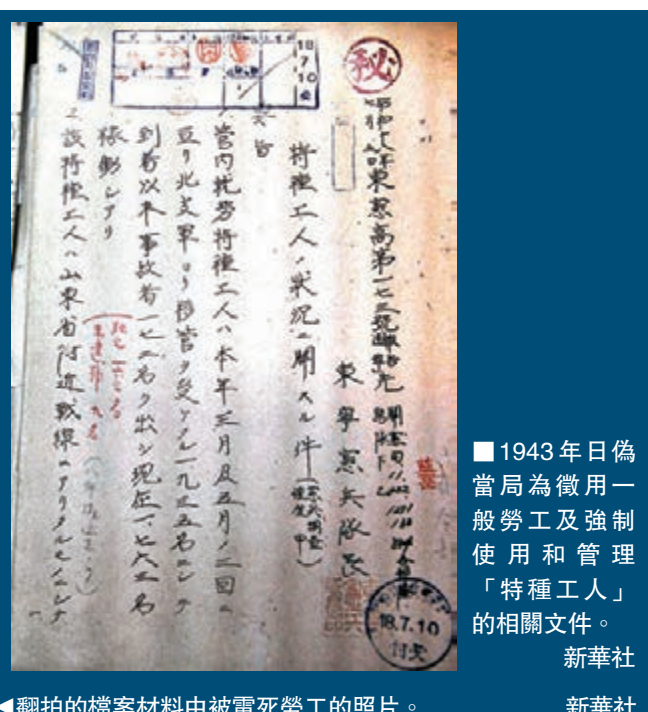 秘
18
7
10
東憲高第一七三號
東寧憲兵隊長
特種工人ノ狀況ニ關スル件
管内就勞特種工人ハ本年三月及五月ノ二回ニ
亘リ北支軍ヨリ移管ヲ受ケタル一九三五名ニシテ
到着以来事故者一七二名ヲ出シ現在一、七六三名
稼動シアリ
該特種工人ハ山東省附近戰線ニアリタルモノニシテ
18.7.10
■1943年日偽
當局為徵用一
般勞工及強制
使用和管理
「特種工人」
的相關文件。
新華社
◀翻拍的檔案材料中被電死勞工的照片。 新華社